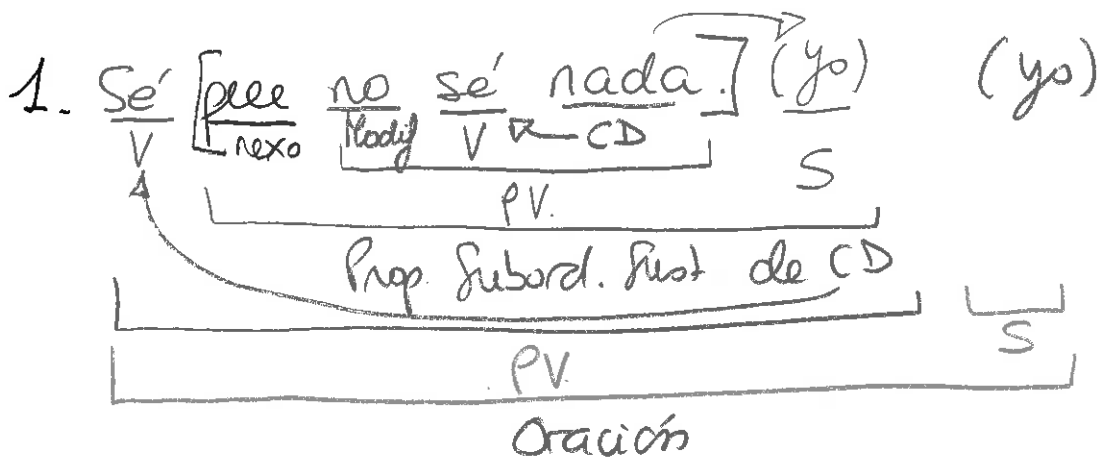 1. Sé [que no sé nada.] (yo) (yo)
V nexo Modif V CD S
PV.
Prop. Subord. Sust de CD
S
PV.
Oración